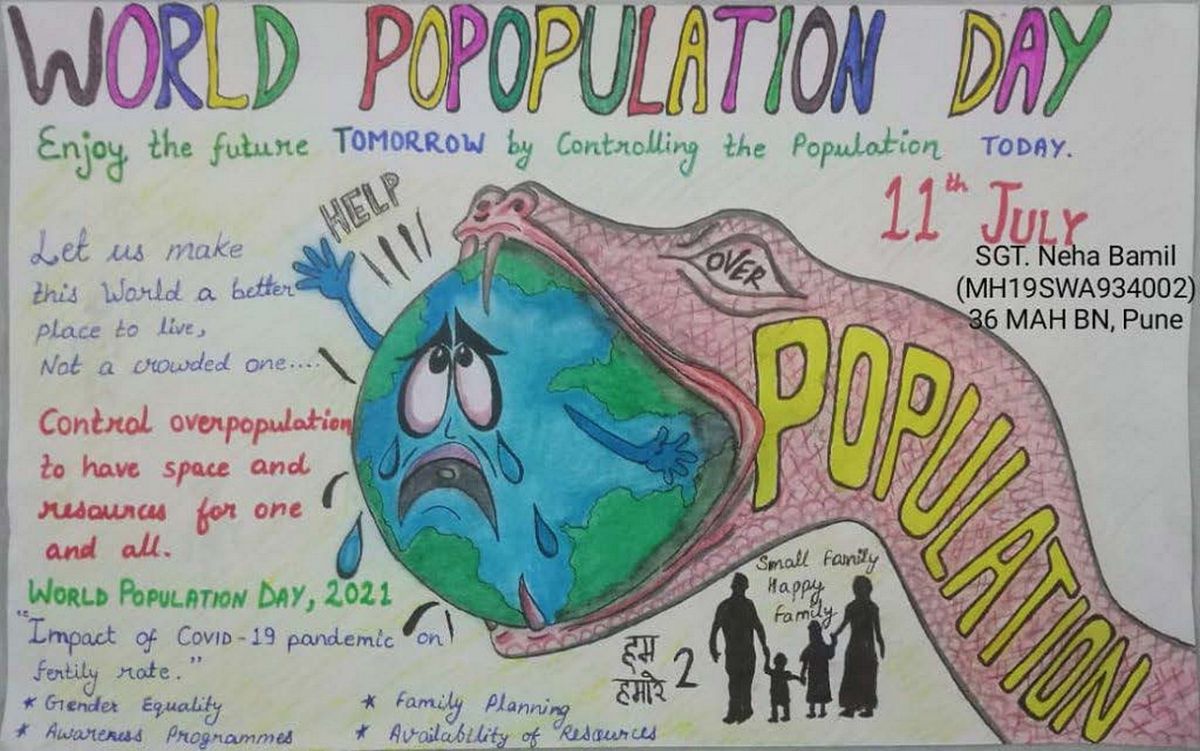 WORLD POPOPULATION DAY
Enjoy the future TOMORROW by Controlling the Population TODAY.
11th JULY
SGT. Neha Bamil
(MH19SWA934002)
36 MAH BN, Pune
HELP
Let us make
this World a better
place to live,
Not a crowded one....
OVER
POPULATION
Control overpopulation
to have space and
resources for one
and all.
WORLD POPULATION DAY, 2021
"Impact of COVID-19 pandemic on
fertily rate."
* Gender Equality
* Awareness Programmes
* Family Planning
* Availability of Resources
Small Family
Happy
Family
हम
हमारे 2